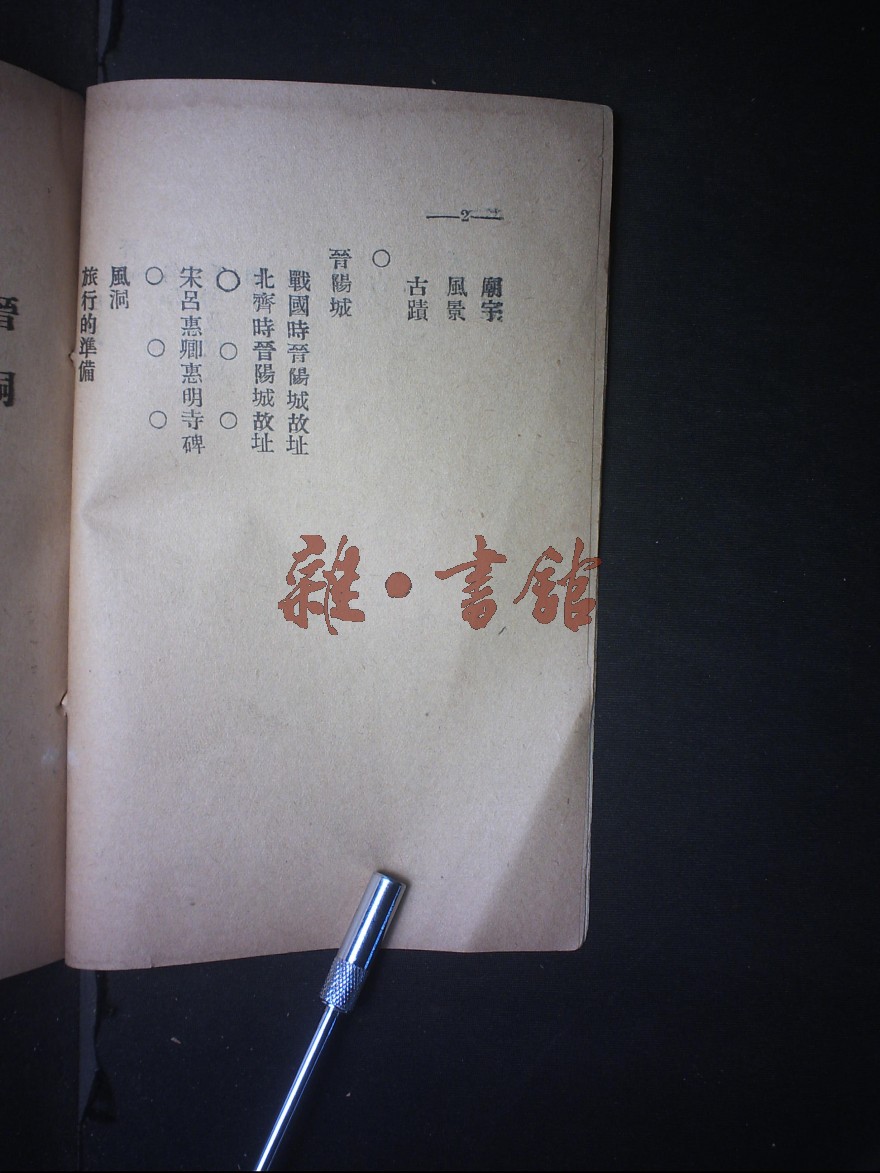 —2—
廟宇
風景
古蹟
○
晉陽城
戰國時晉陽城故址
北齊時晉陽城故址
○ ○ ○
宋呂惠卿惠明寺碑
○ ○ ○
風洞
旅行的準備
晉
雜·書館